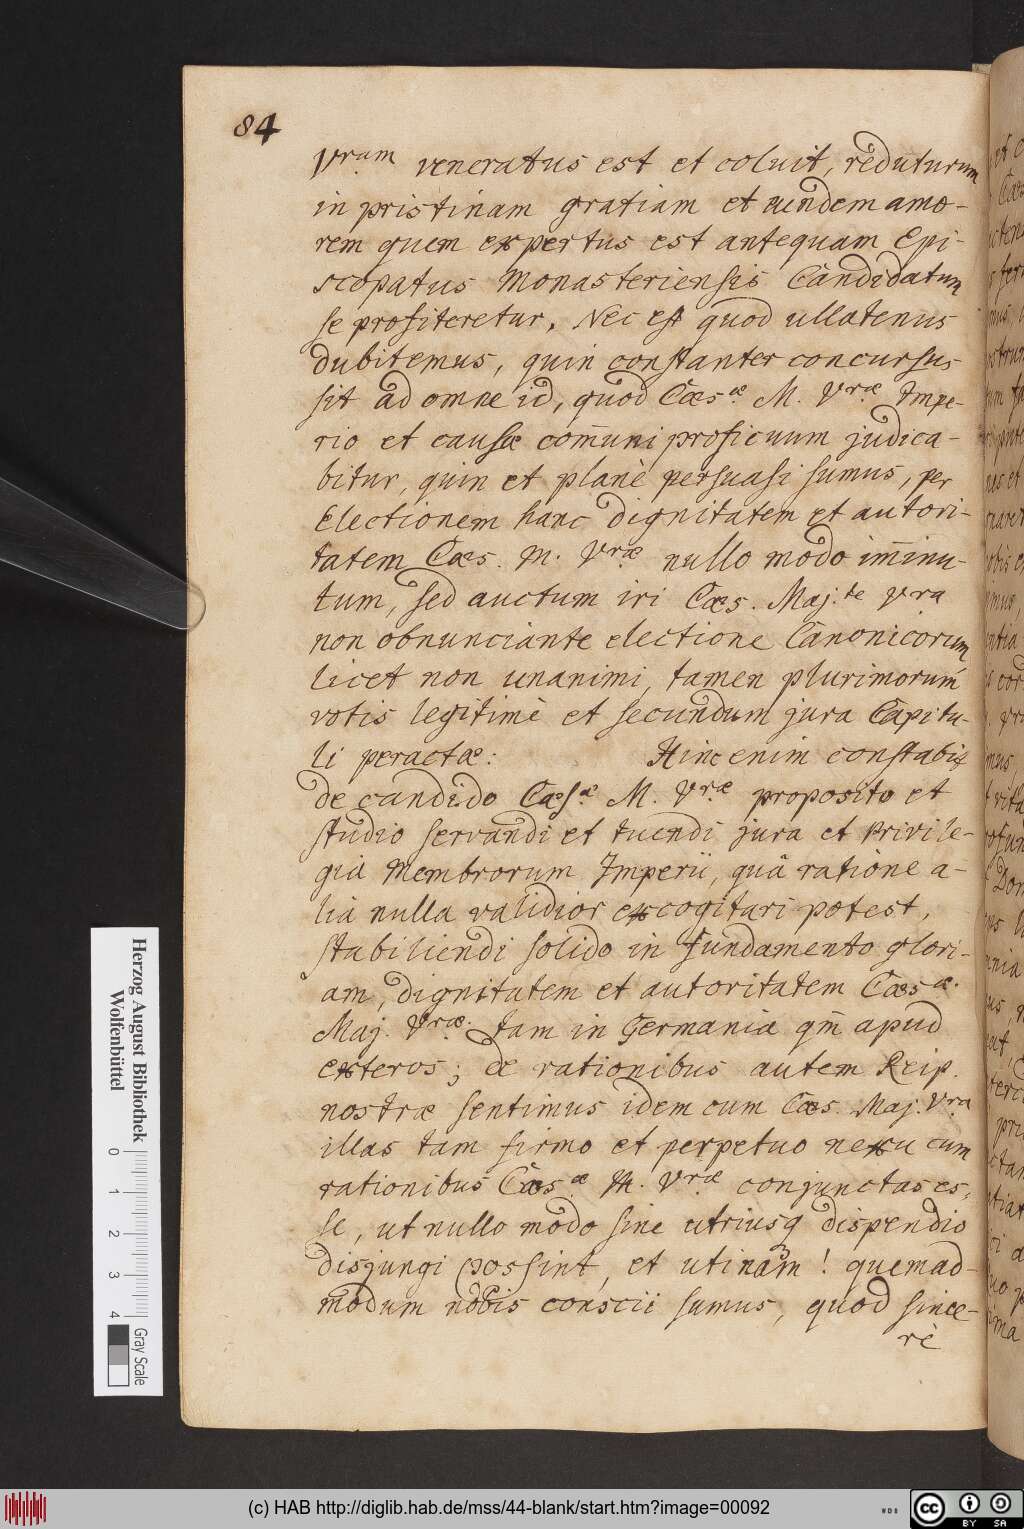 84
Vram veneratus est et coluit, reduturum
in pristinam gratiam et eundem amo-
rem quem expertus est antequam Epi-
scopatus Monasteriensis Candidatum
se profiteretur. Nec est quod ullatenus
dubitemus, quin constanter concursus
sit ad omne id, quod Cæs.æ M. Vræ Impe-
rio et causæ com̄uni proficuum judica-
bitur, quin et planè persuasi sumus, per
Electionem hanc dignitatem et autori-
tatem Cæs. M. Vræ nullo modo im̄inu-
tum, sed auctum iri Cæs. Maj.te Vra
non obnunciante electione Canonicorum
licet non unanimi, tamen plurimorum
votis legitimè et secundum jura Capitu-
li peractæ: Hinc enim constabit
de candido Cæs.æ M. Vræ proposito et
studio servandi et tuendi jura et Privile-
gia Membrorum Imperii, quâ ratione a-
lia nulla validior excogitari potest,
stabiliendi solido in fundamento glori-
am, dignitatem et autoritatem Cæs.æ
Maj. Vræ. tam in Germania qm̄ apud
exteros; de rationibus autem Reip.
nostræ sentimus idem cum Cæs. Maj. Vra
illas tam firmo et perpetuo nexu cum
rationibus Cæs.æ M. Vræ conjunctas es-
se, ut nullo modo sine utriusq dispendio
disjungi possint, et utinam! quemad-
modum nobis conscii sumus, quod since-
rè
Herzog August Bibliothek
Wolfenbüttel
0 1 2 3 4
Gray Scale
(c) HAB http://diglib.hab.de/mss/44-blank/start.htm?image=00092
WDB
cc BY SA